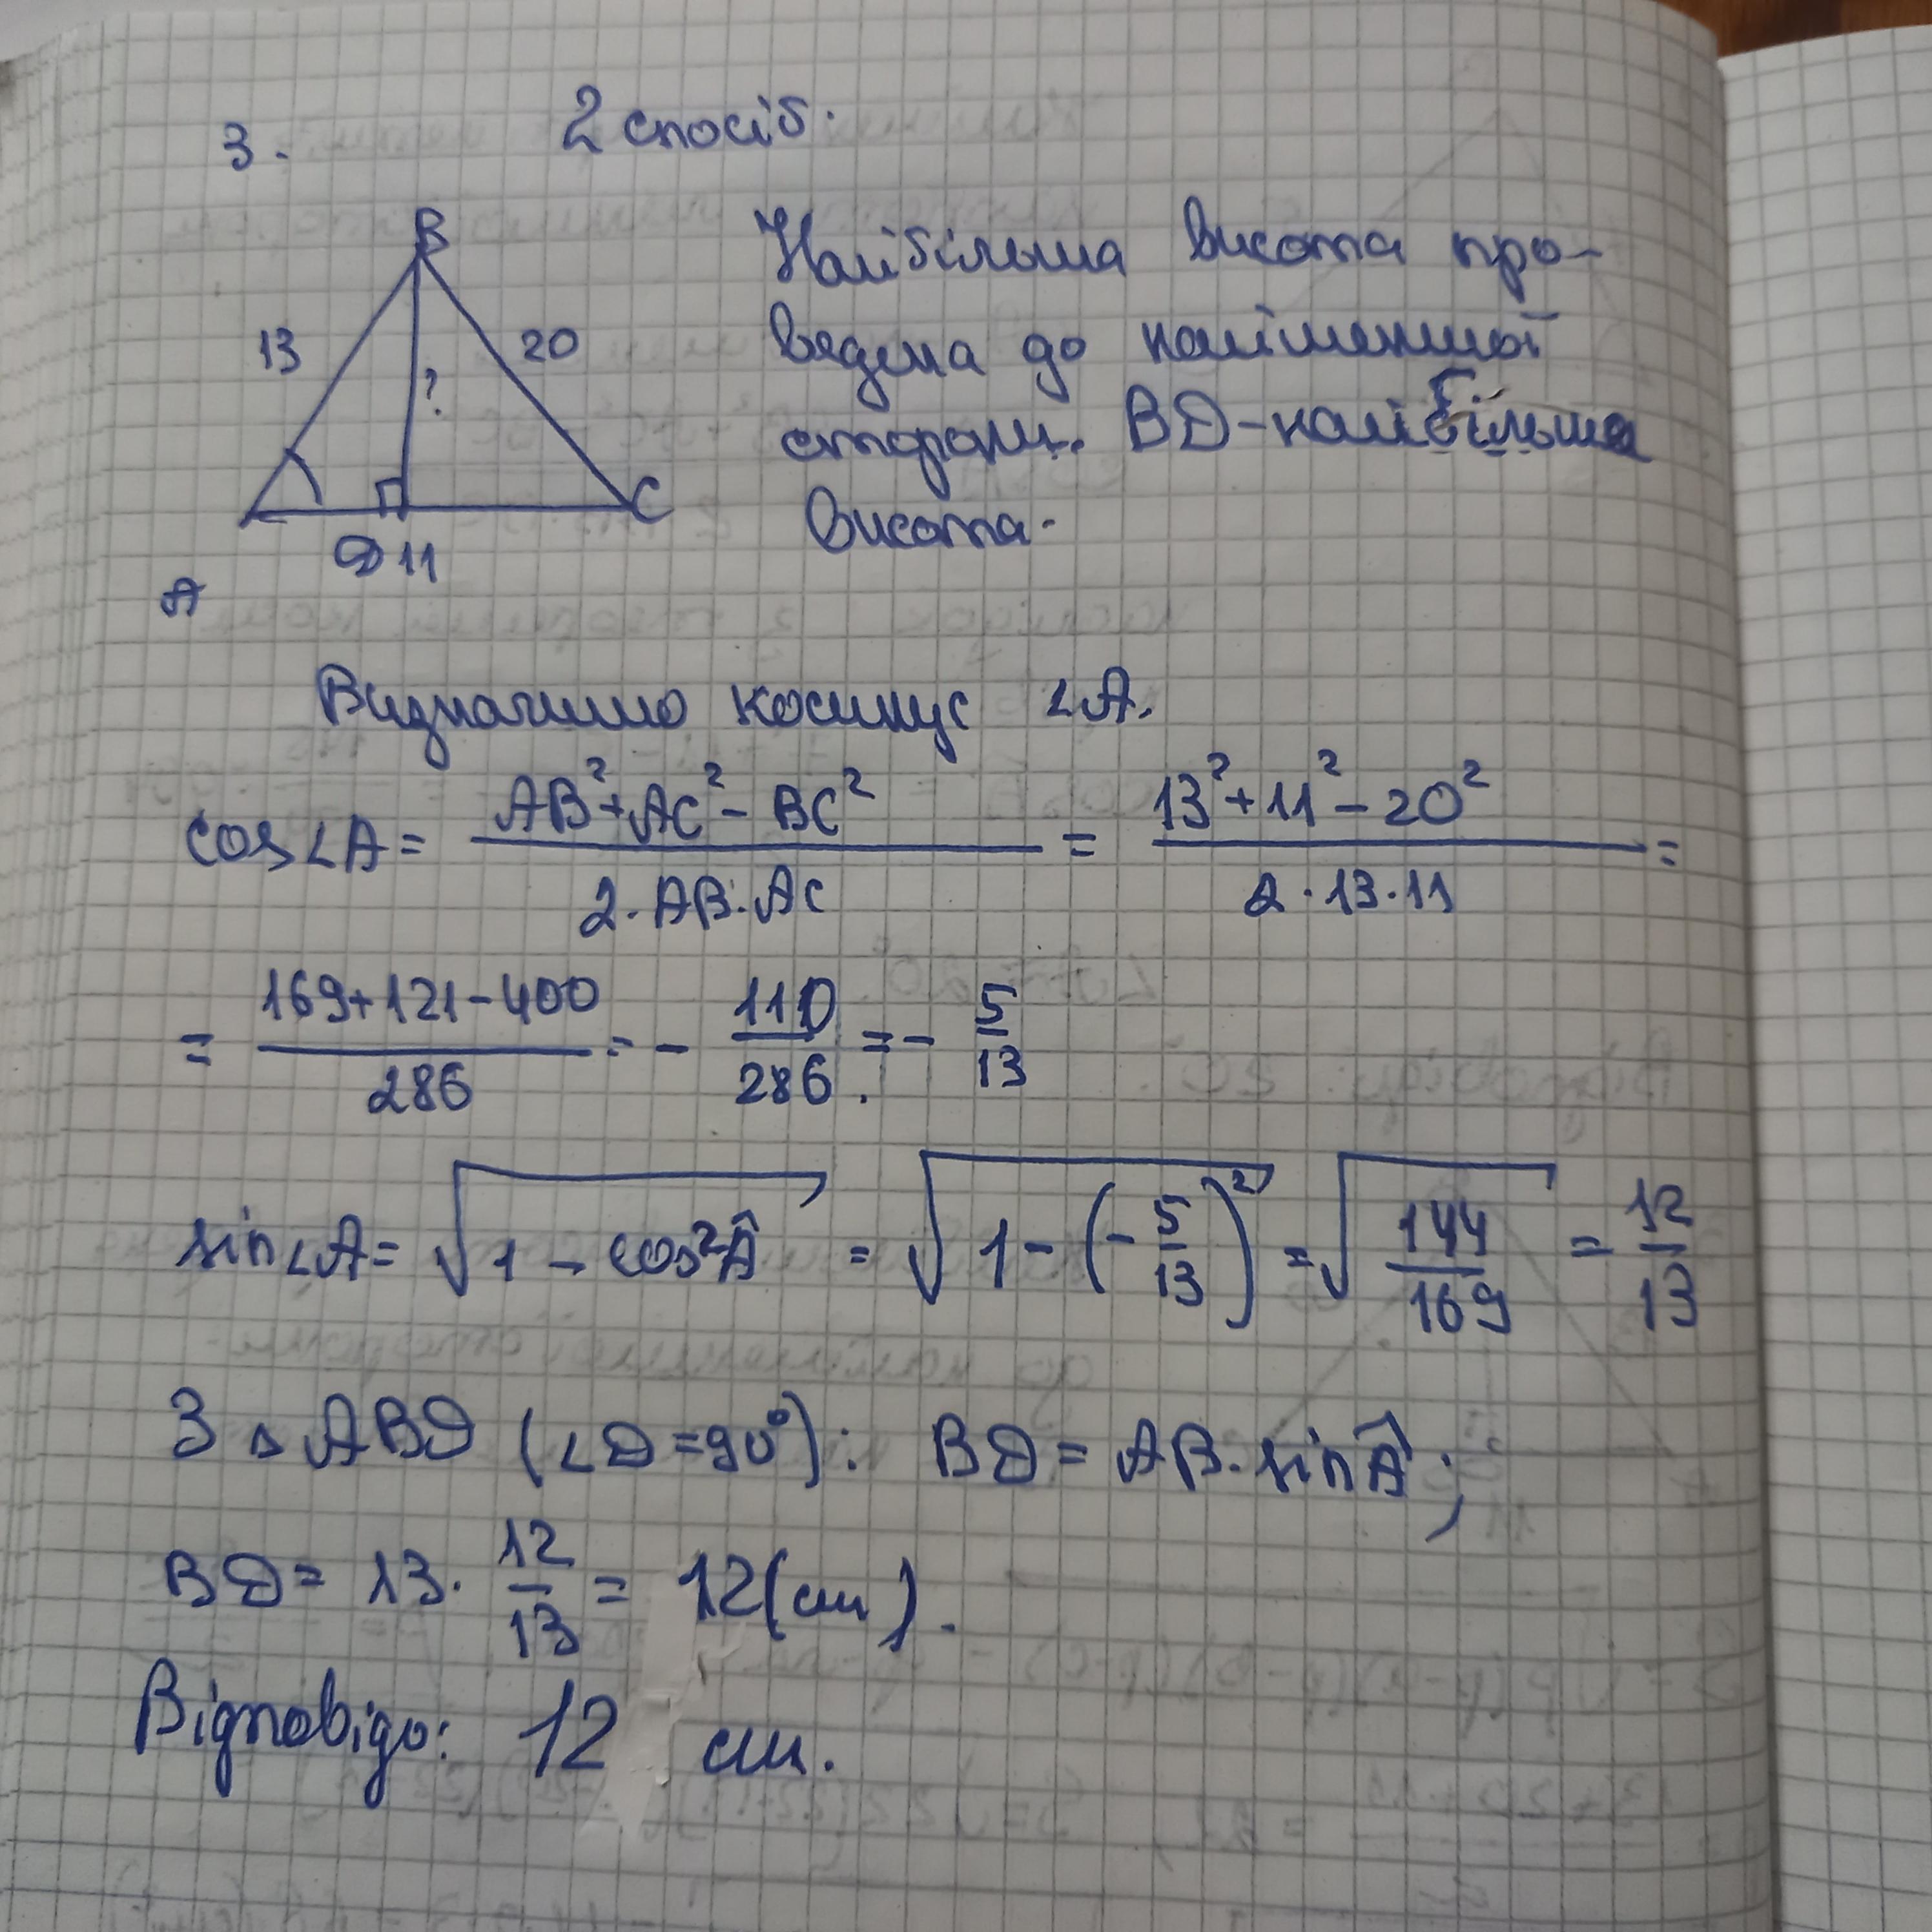 3. 2 спосіб.
B
Найбільша висота про-
13 20
ведена до найменшої
?
сторони. BD-найбільша
C
висота.
D 11
A
Визначимо косинус ∠A.
cos∠A = (AB²+AC²-BC²)/(2·AB·AC) = (13²+11²-20²)/(2·13·11) =
= (169+121-400)/286 = - 110/286 = - 5/13
sin∠A = √(1 - cos²Â) = √(1-(-5/13)²) = √(144/169) = 12/13
З △ABD (∠D=90°): BD = AB·sinÂ;
BD = 13· 12/13 = 12(см).
Відповідь: 12 см.